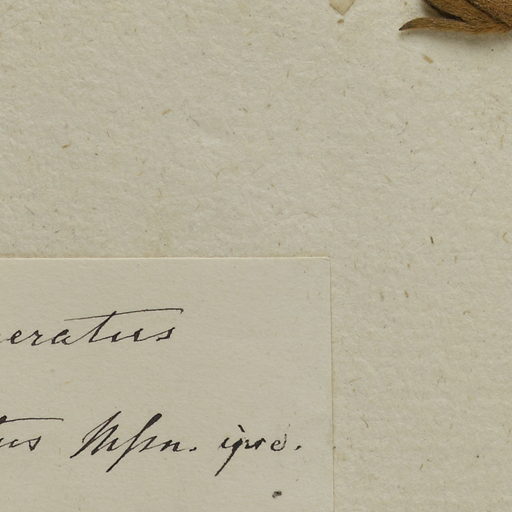 eratus
tus Mssn. ipse.